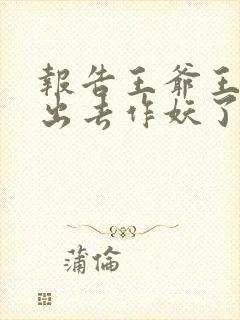 報告王爺王
出去作妖了
蒲倫